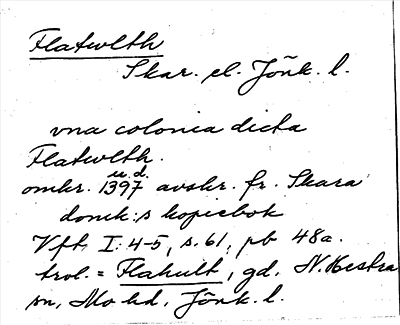 Flatwlth
Skar. el. Jönk. l.
vna colonia dicta
Flatwlth.
u.d.
omkr. 1397 avskr. fr. Skara
domk:s kopiebok
Vft I: 4-5, s. 61, pb 48a.
trol. = Flahult, gd, N. Hestra
sn, Mo hd, Jönk. l.